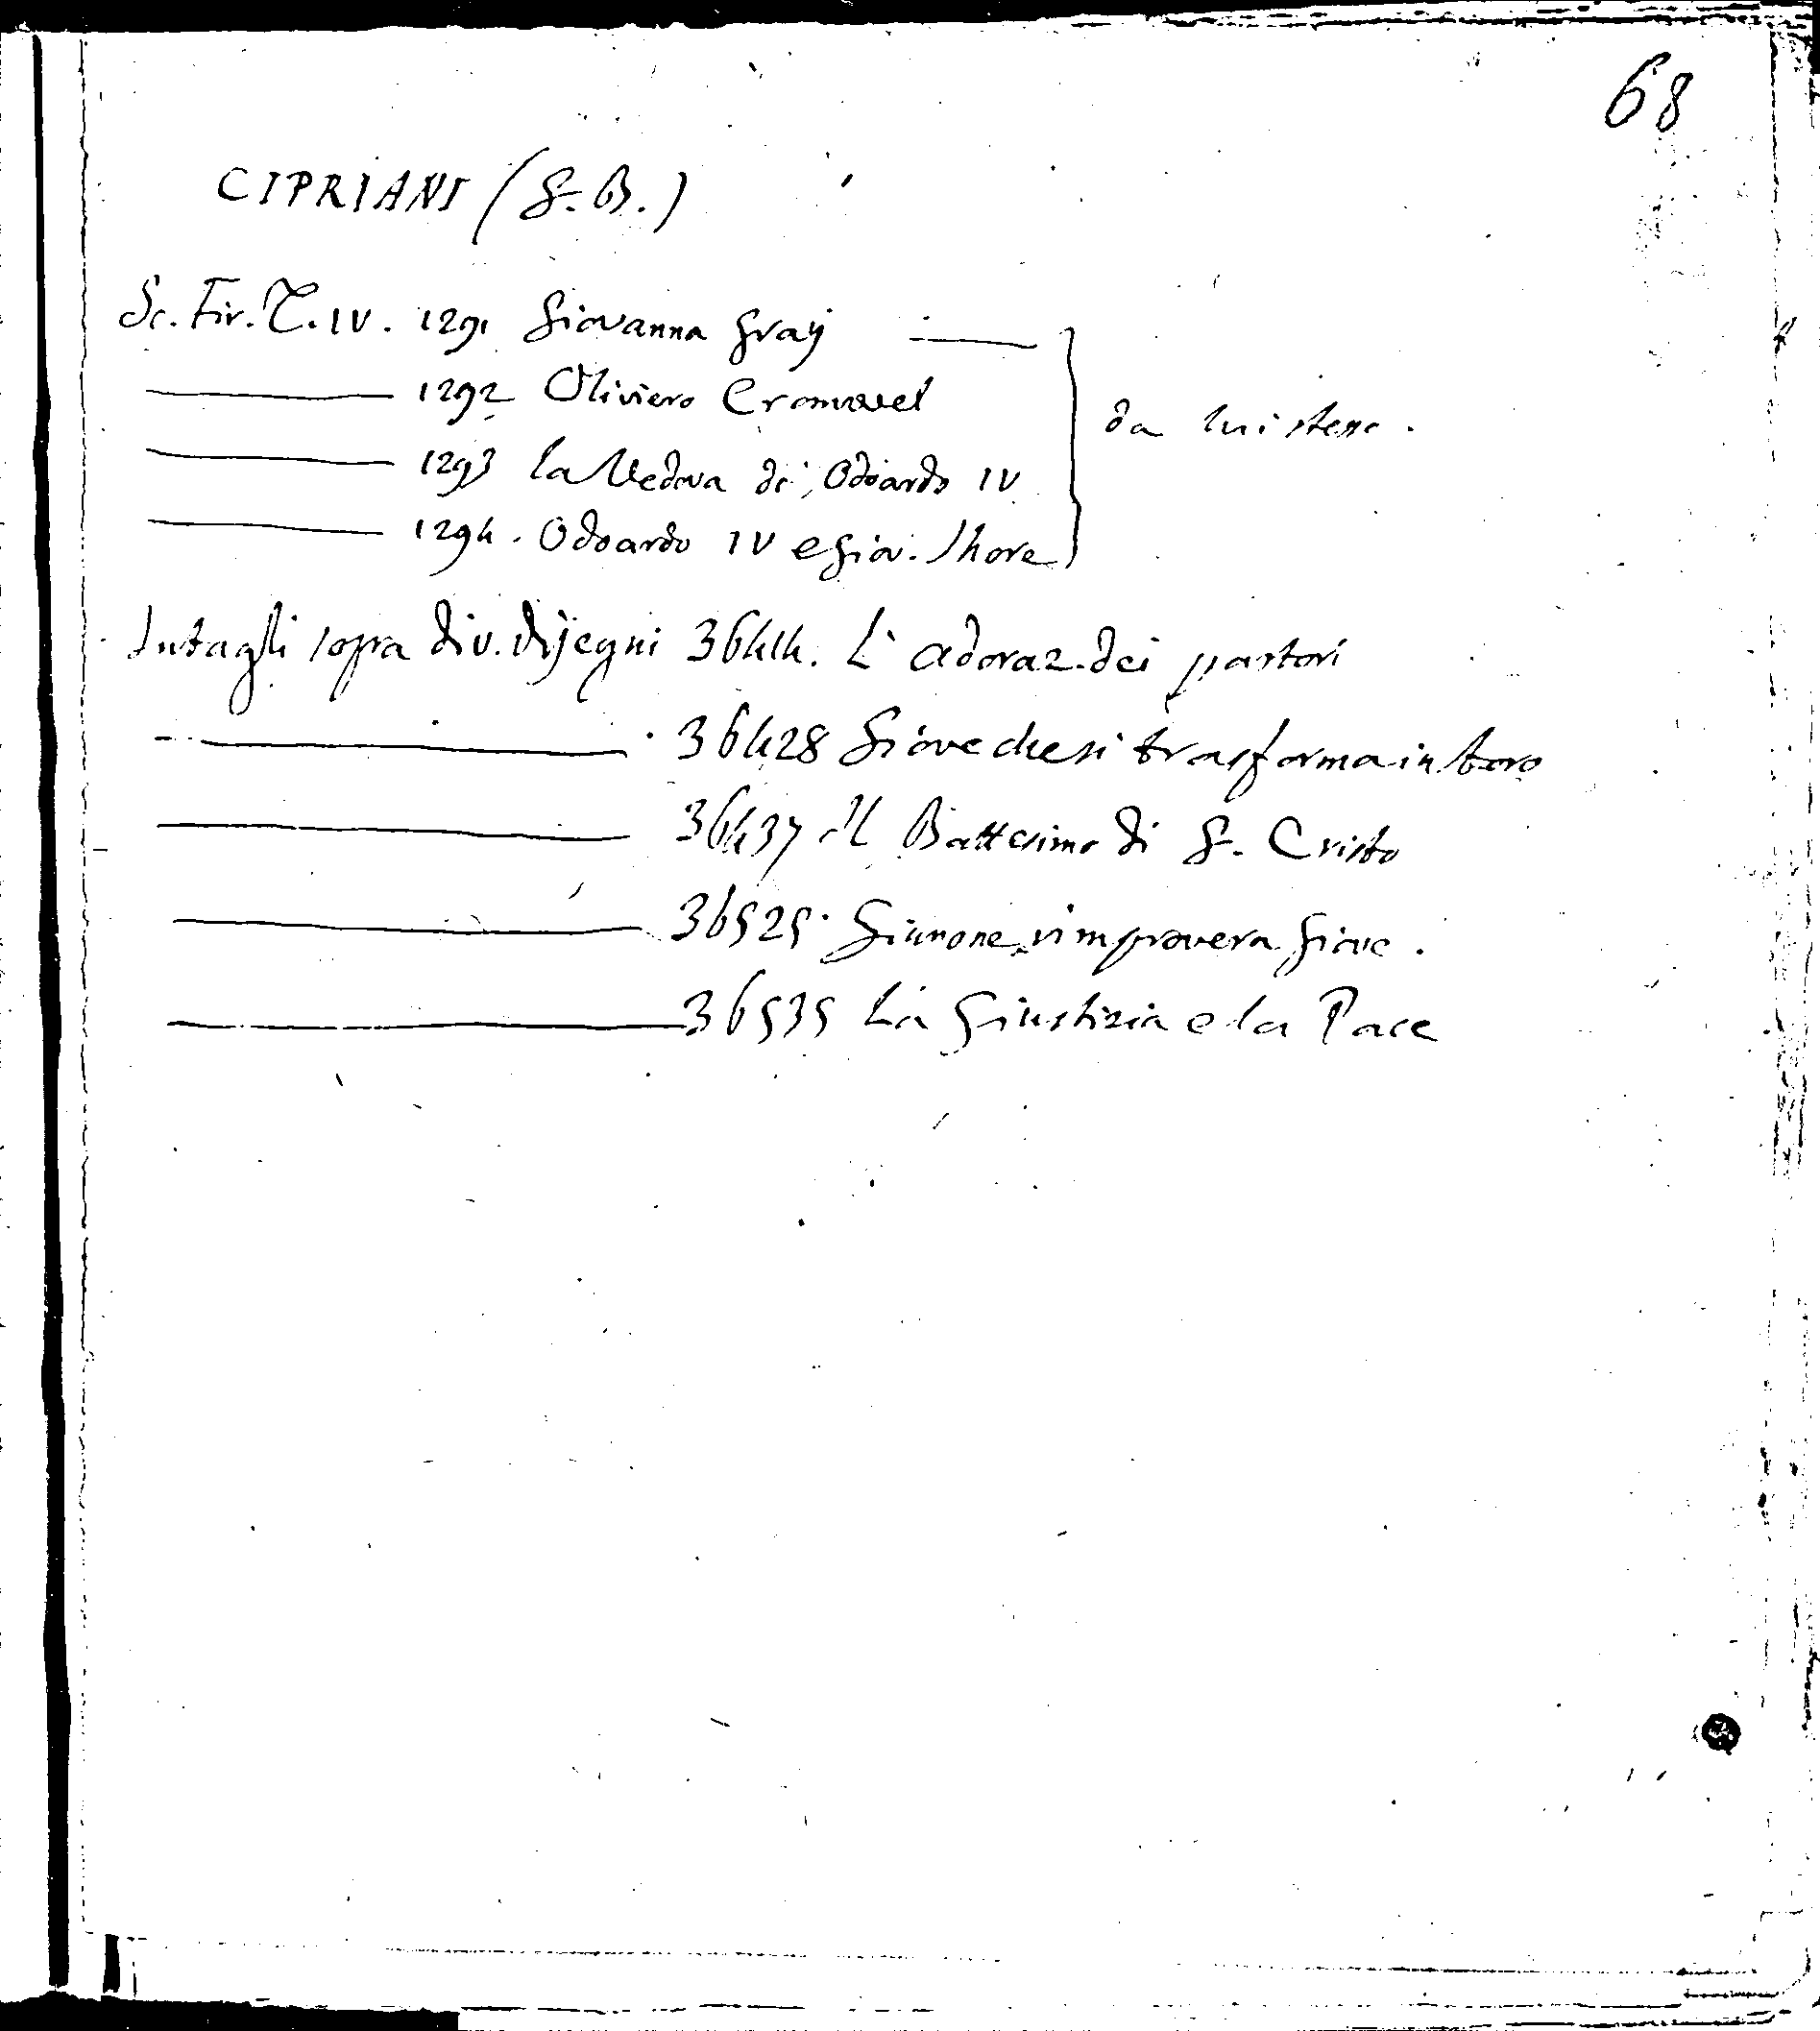 68
CIPRIANI (G. B.)
Sc. Fir. T. IV. 1291 Giovanna Gray
1292 Oliviero Cromwel
da lui stesso.
1293 la Vedova di Odoardo IV
1294. Odoardo IV e Giov. Shore
Intagli sopra div. disegni 36414. L'adoraz. dei pastori
36428 Giove che si trasforma in toro
36437 Il Battesimo di G. Cristo
36525. Giunone rimprovera Giove.
36535 La Giustizia e la Pace